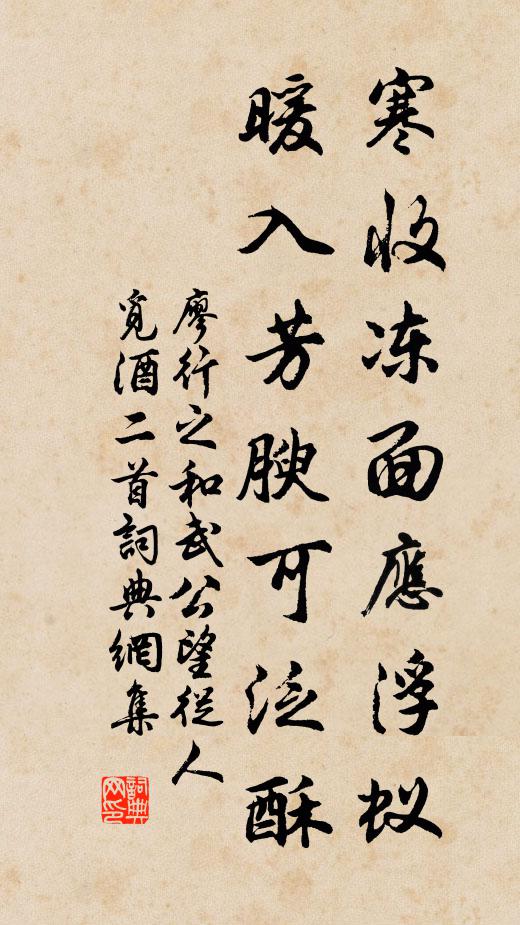 寒收冻面應浮蚁
暖入芳腴可泛酥
廖行之和武公望從人
覓酒二首詞典網集
詞典網印